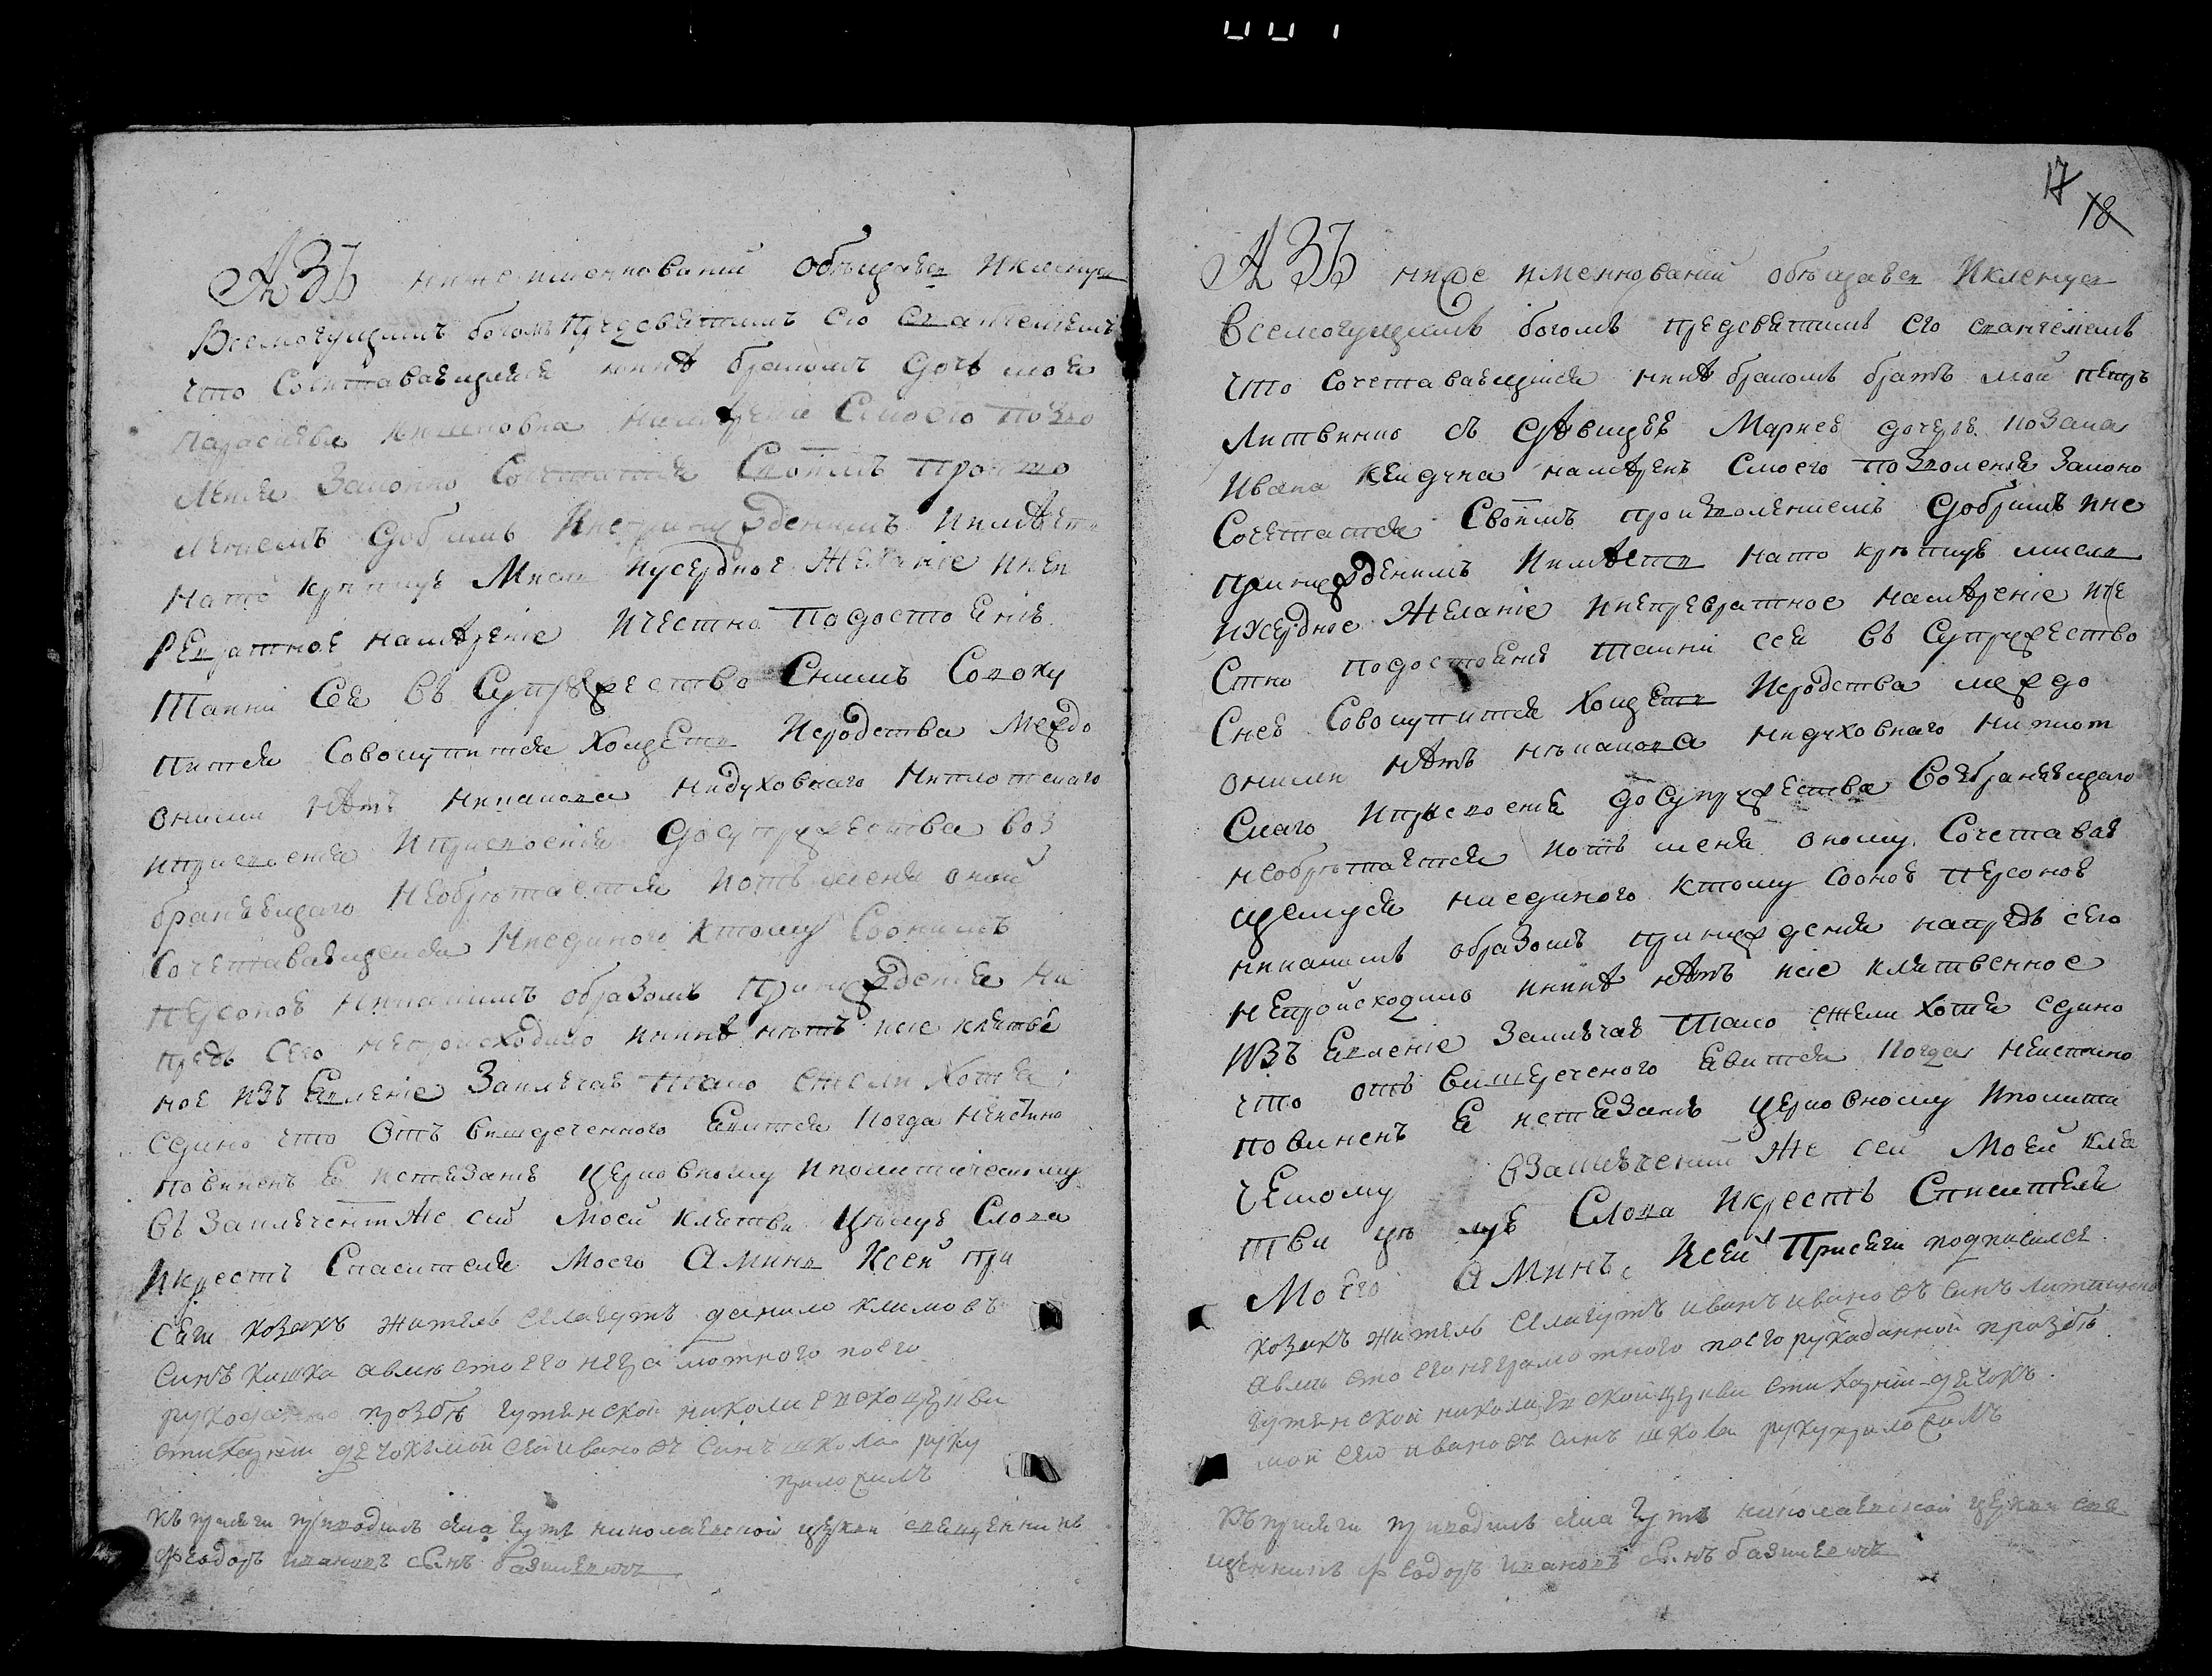 АЗЪ ниже именнований обѣщаюся и кленуся
Всемогущимъ богомъ предсвятимъ его евангелиемъ
что Сочетавающаяся нинѣ бракомъ дочь моя
Параскева намѣрена Смоего позво
ления Законно Сочетатся Своимъ произво
лениемъ добримъ и не принужденимъ и имѣетъ
на то крѣпкую мисль и усердное желание и неп
ревратное намѣрение и честно по достоянию
Тайни Сея въ Супружество Снимъ Совоку
пится Совокупится хощетъ и сродства между
оними нѣтъ никакова ни духовнаго ни плотскаго
и присвоения и присвоения до супружества воз
браняющаго не обрѣтается и отъ меня оной
Сочетавающейся ни единого к тому Соонимъ
персоною никакимъ образомъ принуждения на
предъ сего не происходило и нинѣ нѣтъ и сие клятвен
ное изъявление Заключаю тако ежели хотя
едино что отъ вишереченного явится когда не истинно
повиненъ я истязанию церковному и политическому
въ Заключении же сей моей клятви цѣлую Слова
и крестъ Спасителя моего Аминь. К сей при
сяги козакъ житель села гутъ данило климовъ
синъ кишка а вмѣсто его неграмотного по его
рукоданно прозбѣ гутянской николаевской церкви
стихарній дячокъ иванювъ синъ школа руку
приложилъ
Къ присяги приводилъ села гутъ николаевской церкви священникъ
Феодоръ ивановъ синъ базилевичъ
17
18
АЗЪ ниже именнований обѣщаюся и кленуся
всемогущимъ богомъ предсвятимъ его евангелиемъ
что сочетавающийся нинѣ бракомъ братъ мой петръ
Литвинко съ дѣвицею Мариею дочерью козака
Ивана намѣренъ Смоего позволения законо
Сочетатся Своимъ произволениемъ добримъ и не
принужденимъ и имѣетъ на то крѣпкую мисль
и усердное желание и непревратное намѣрение и че
стно по достоянию тайни сея въ Супружество
Снею Совокупится хощетъ и сродства между
оними нѣтъ никакова ни духовнаго ни плот
скаго и присвоения до Супружества возбраняющаго
не обрѣтается и отъ меня оному Сочетаваю
щемуся ни единого к тому сооною персоною
никакимъ образомъ принуждения напредъ сего
не происходило и нинѣ нѣтъ и сие клятвенное
изъявление заключаю тако ежели хотя едино
что отъ вишереченого явится когда не истинно
повиненъ я истязанию церковному и полити
ческому въ заключений же сей моей кля
тви цѣлую Слова и крестъ Спасителя
Моего Аминь, К сей Присяги подписался
козакъ житель села гутъ иванъ ивановъ синъ литвинко
а вмѣсто его неграмотного по его рукоданной прозбѣ
гутянской николаевской церкви стихарній дячокъ
ивановъ синъ школа руку приложилъ
Къ присяги приводилъ села гутъ николаевской церкви свя
щенникъ Феодоръ ивановъ синъ базилевичъ